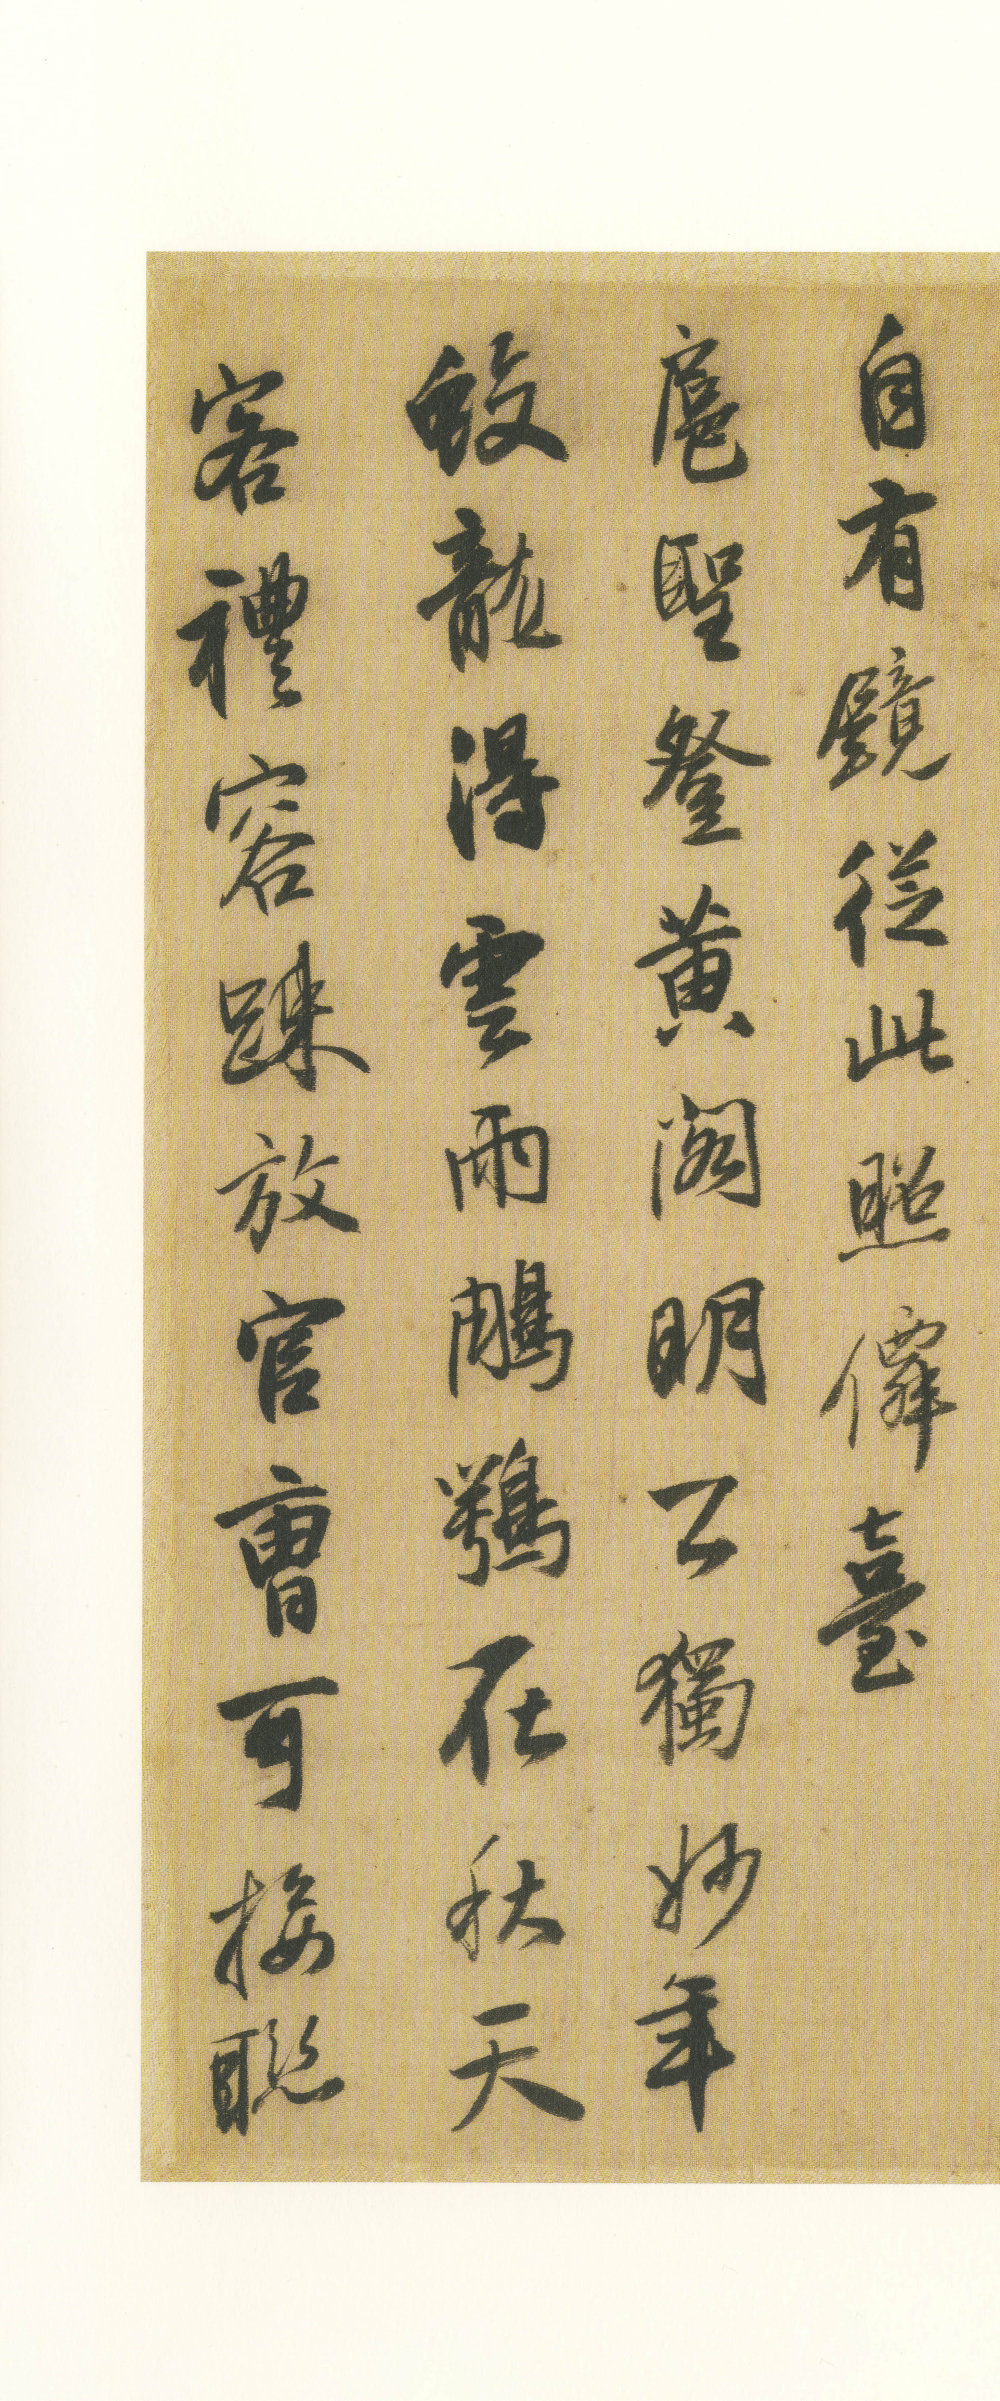 自有鏡從此照僊臺
扈聖登黃閣明公獨妙年
蛟龍得雲雨鵰鶚在秋天
客禮容踈放官曹可接聯